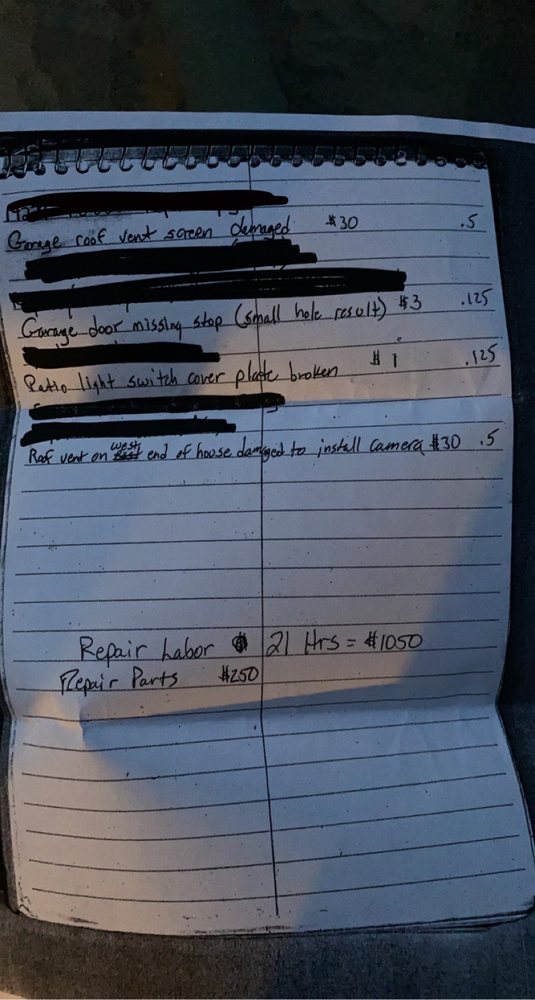 Garage roof vent screen damaged $30 .5
Garage door missing stop (small hole result) $3 .125
Patio light switch cover plate broken $1 .125
Roof vent on west end of house damaged to install camera $30 .5
Repair Labor 21 Hrs = $1050
Repair Parts $250